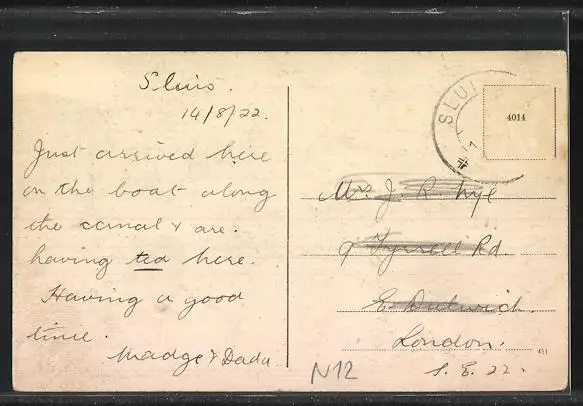 Sluis.
14/8/22.
Just arrived here
on the boat along
the canal & are
having tea here.
Having a good
time.
Madge & Dada
SLUI
4014
Mrs. J. R.
9 Tyrrell Rd.
E. Dulwich.
London.
S. E. 22.
431
N12